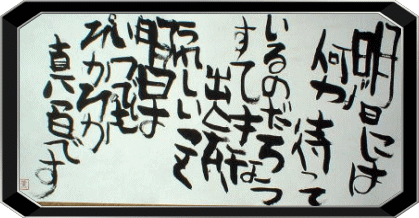 明日には
何が待って
いるのだろう
すてきな
うれしいこと
明日は
いつでも
ぴかぴか
真白です